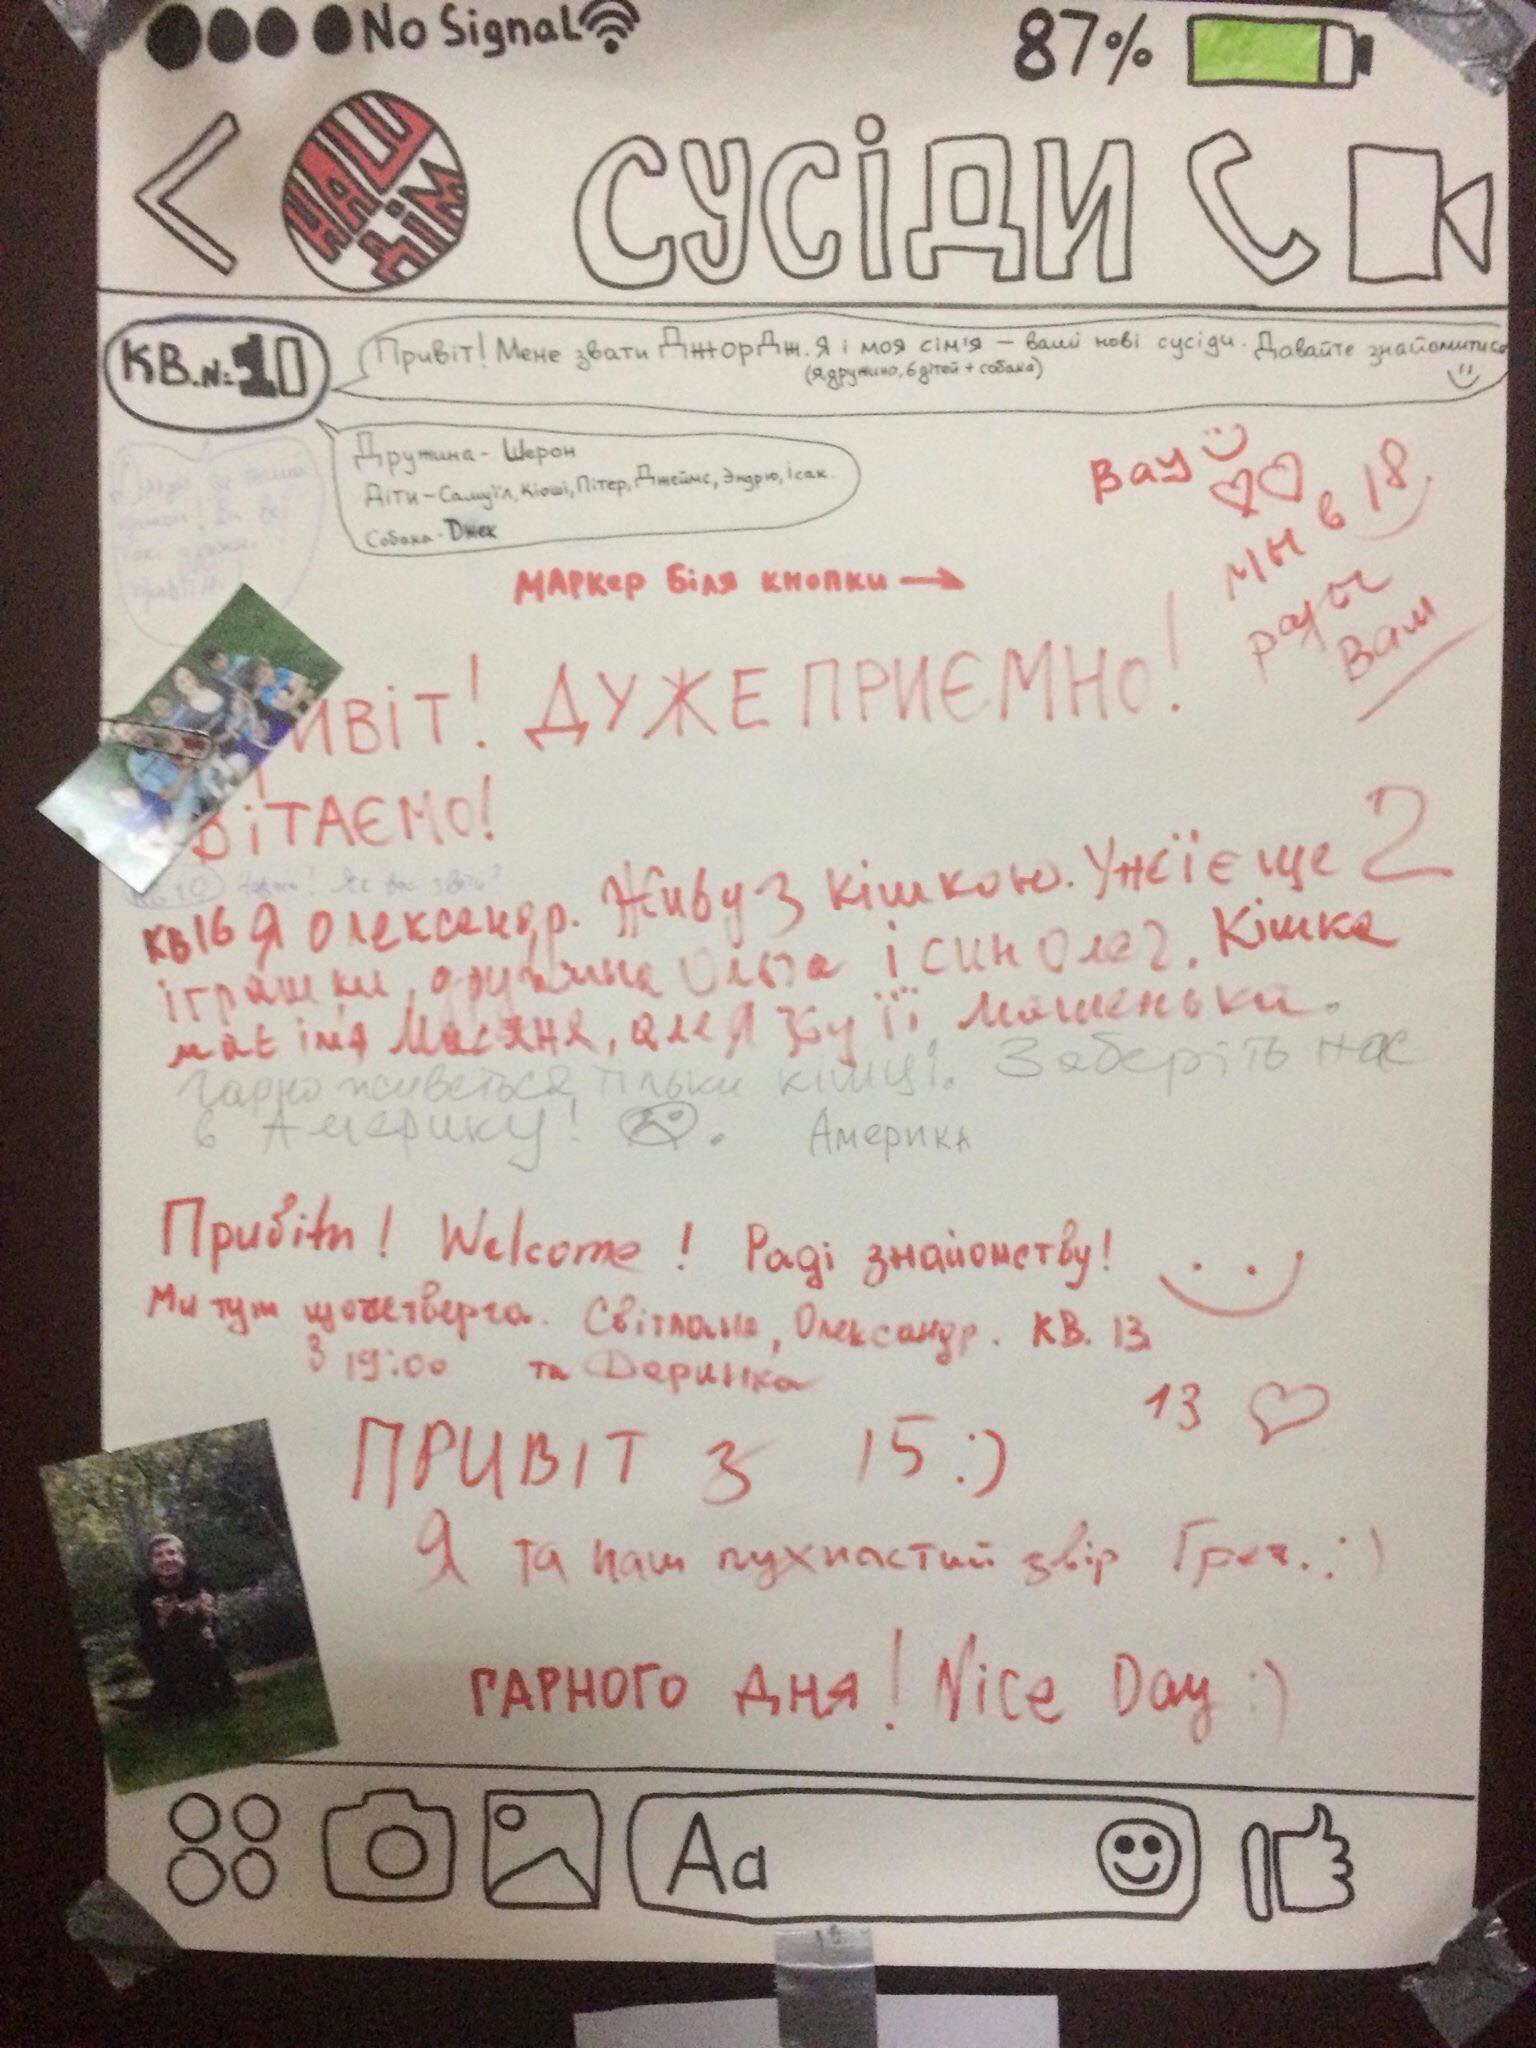 No Signal
87%
НАШ
ДІМ
СУСІДИ
КВ.№:10
Привіт! Мене звати ДжорДж. Я і моя сім'я — ваші нові сусіди. Давайте знайомитись
(я, дружина, 6 дітей + собака)
Дружина - Шерон
Діти - Самуїл, Кіоші, Пітер, Джеймс, Эндрю, Ісак.
Собака - Джек
Вау
мы в 18
рады
Вам
МАРКер біля кнопки →
ИВІТ! ДУЖЕ ПРИЄМНО!
ВІТАЄМО!
10 Як вас звати?
КВ16 Я Олександр. Живу з кішкою. У неї є ще 2
іграшки, дружина Ольга і син Олег. Кішка
має ім'я Масяня, але я зву її Машенька.
Гарно живеться тільки кішці. Заберіть нас
в Америку! Америка
Привіт! Welcome! Раді знайомству!
Ми тут щочетверга. Світлана, Олександр. КВ. 13
з 19:00 та Даринка
13
ПРИВІТ з 15 :)
Я та наш пухнастий звір Грей. :)
ГАРНОГО ДНЯ! Nice Day :)
Aa